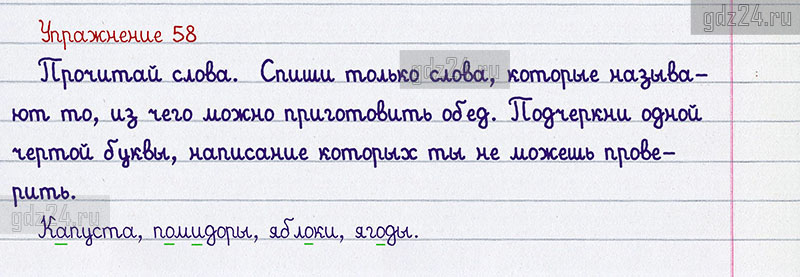 gdz24.ru
Упражнение 58
Прочитай слова. Спиши только слова, которые называ-
gdz24.ru
ют то, из чего можно приготовить обед. Подчеркни одной
чертой буквы, написание которых ты не можешь прове-
рить.
gdz24.ru
Капуста, помидоры, яблоки, ягоды.